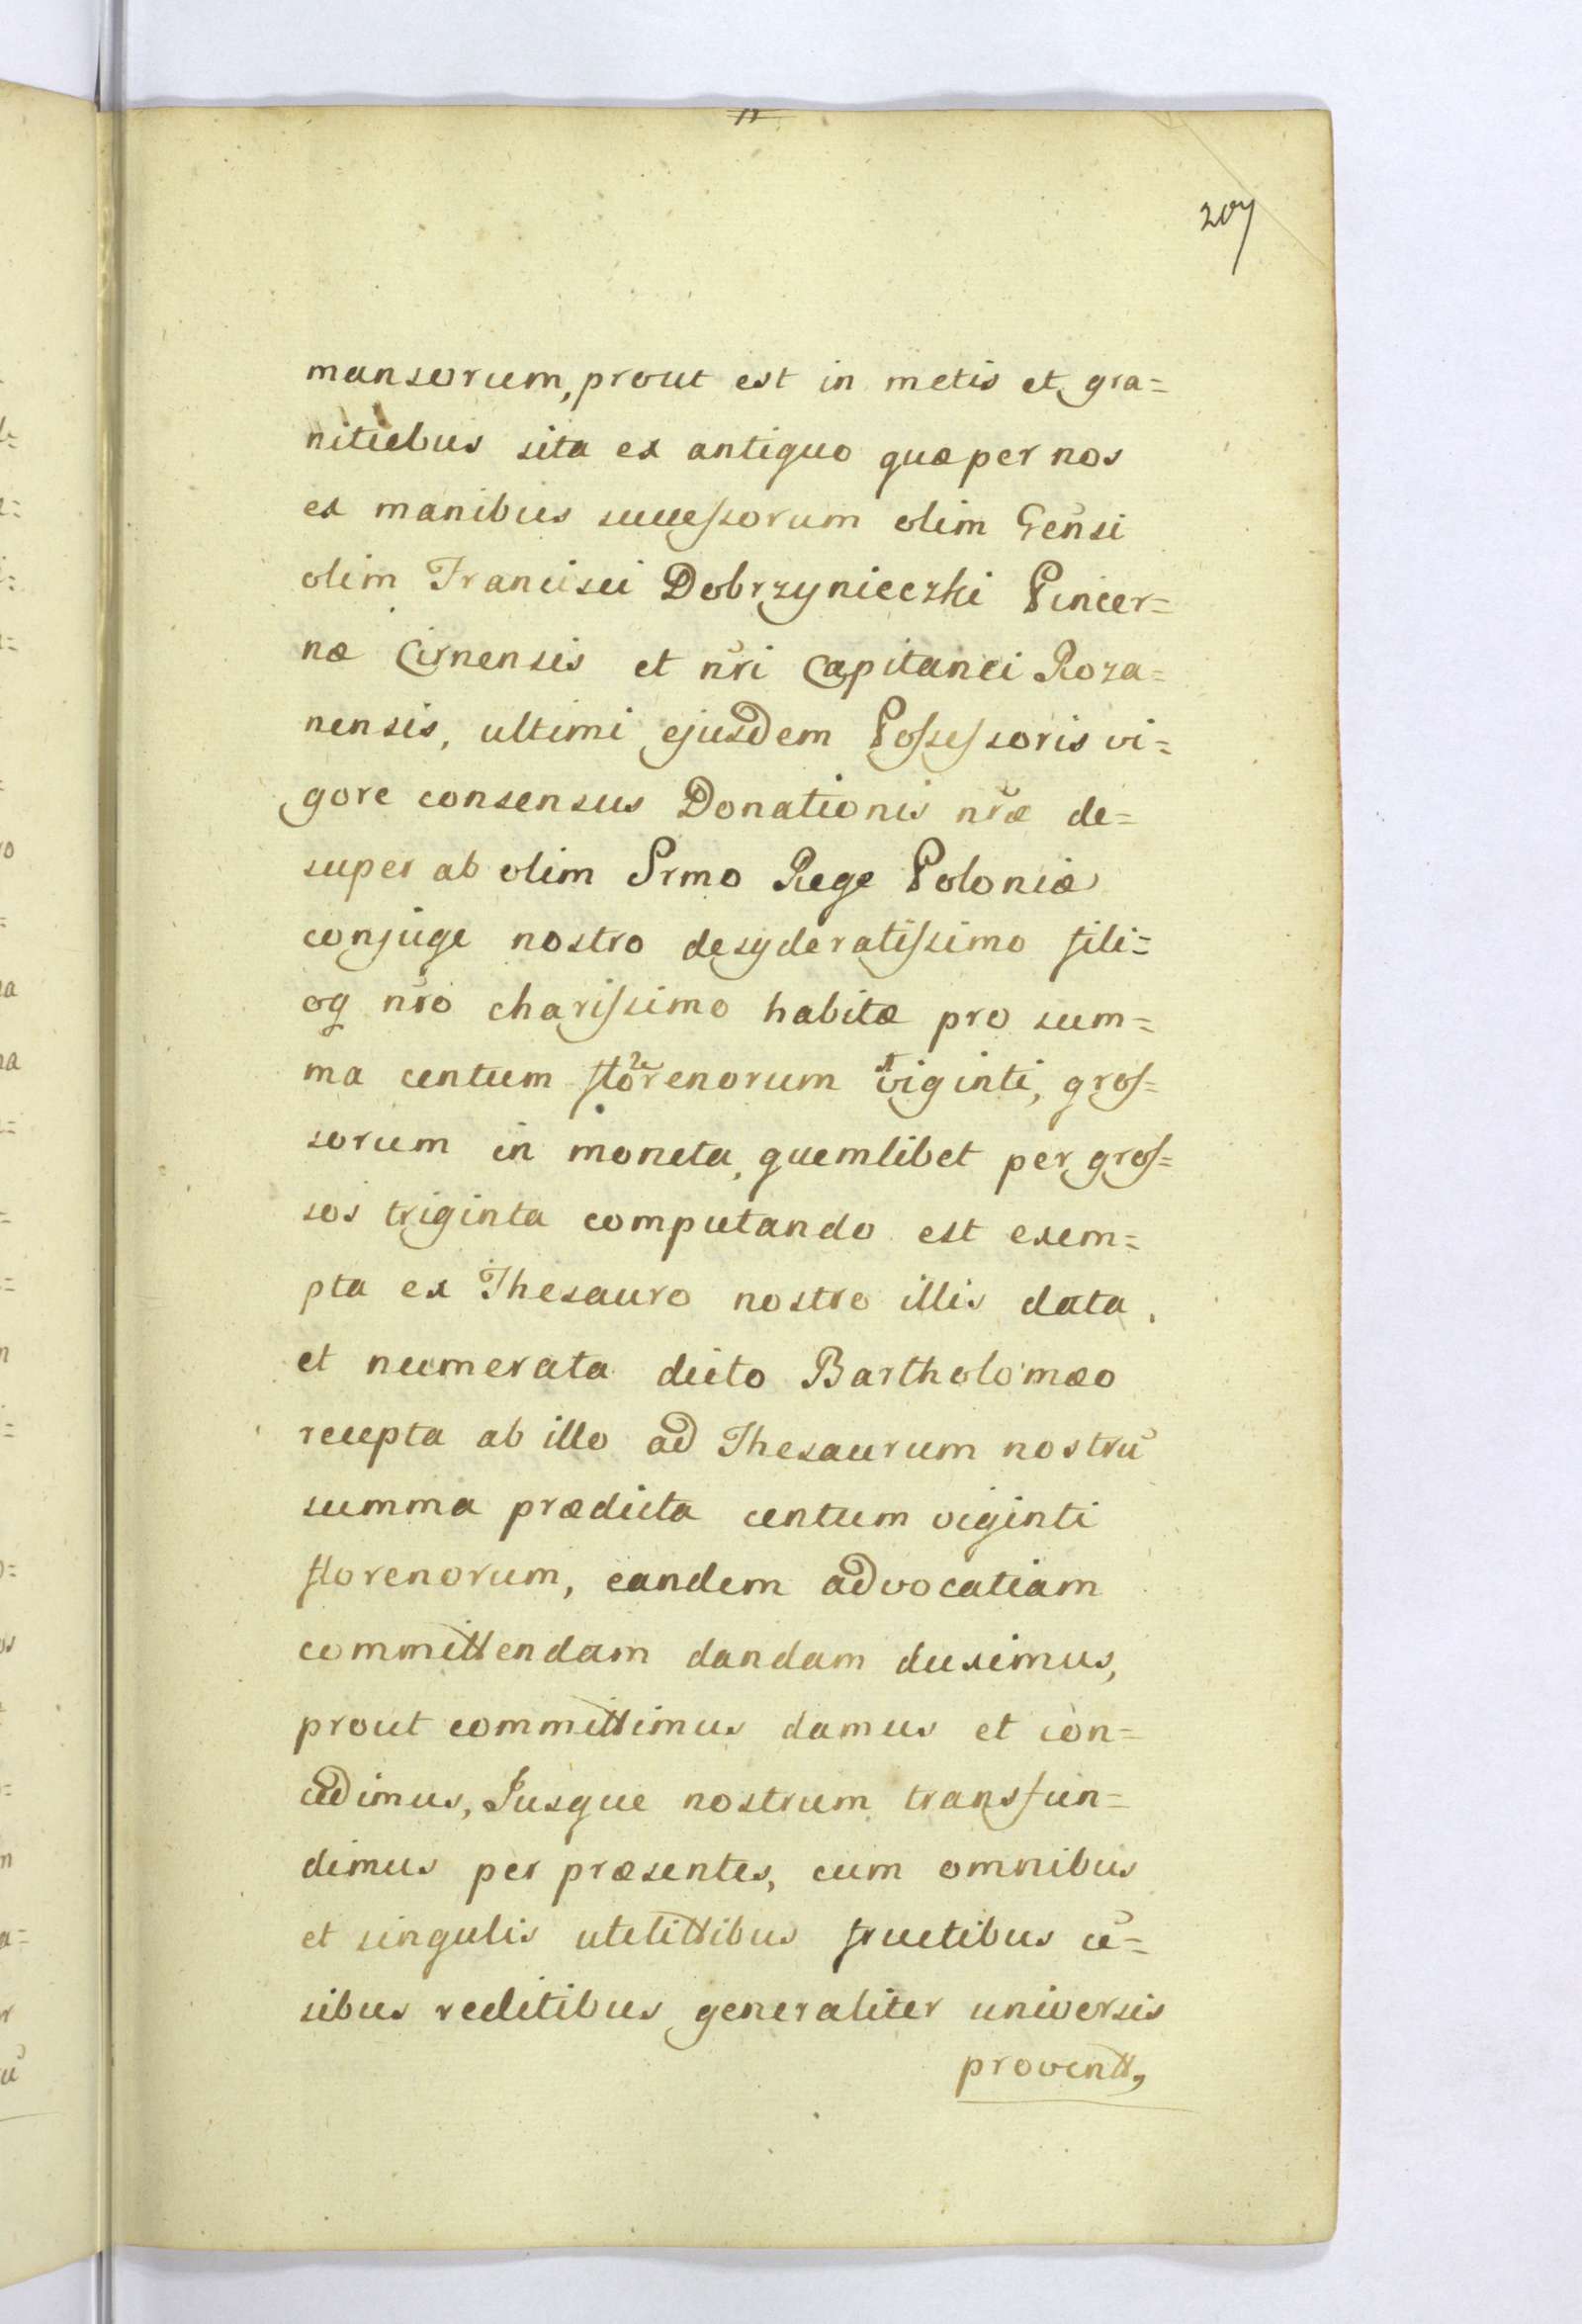 207
mansorum, prout est in metis et gra=
nitiebus sita ex antiquo quæ per nos
ex manibus successorum olim Gensi
olim Francisci Dobrzynieczki Pincer=
næ Cirnensis et nr̃i Capitanei Roza=
nensis, ultimi ejusdem Possessoris vi=
gore consensus Donationis nr̃æ de=
super ab olim Srmo Rege Poloniæ
conjuge nostro desyderatissimo fili=
oq nr̃o charissimo habitæ pro sum=
ma centum florenorum viginti, gros=
sorum in moneta, quemlibet per gros=
sos triginta computando est exem=
pta ex Thesauro nostro illis data,
et numerata dicto Bartholomæo
recepta ab illo ad Thesaurum nostrũ
summa prædicta centum viginti
florenorum, eandem advocatiam
committendam dandam duximus,
prout committimus damus et con=
cedimus, Jusque nostrum transfun=
dimus per præsentes, cum omnibus
et singulis utilittibus fructibus cẽ=
sibus reditibus generaliter universis
proventt,